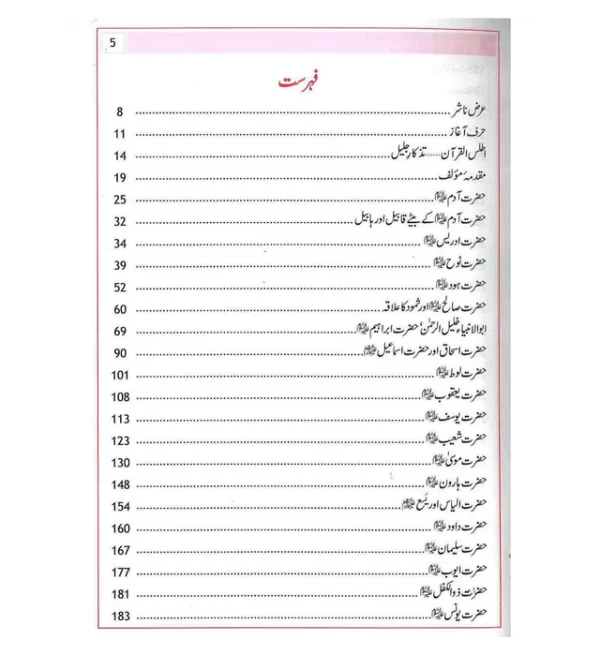 5
فہرست
عرض ناشر 8
حرف آغاز 11
اطلس القرآن...... تذکار جلیل 14
مقدمۂ مؤلف 19
حضرت آدم علیہ السلام 25
حضرت آدم علیہ السلام کے بیٹے قابیل اور ہابیل 32
حضرت ادریس علیہ السلام 34
حضرت نوح علیہ السلام 39
حضرت ہود علیہ السلام 52
حضرت صالح علیہ السلام اور ثمود کا علاقہ 60
ابوالانبیاء خلیل الرحمٰن' حضرت ابراہیم علیہ السلام 69
حضرت اسحاق اور حضرت اسماعیل علیہما السلام 90
حضرت لوط علیہ السلام 101
حضرت یعقوب علیہ السلام 108
حضرت یوسف علیہ السلام 113
حضرت شعیب علیہ السلام 123
حضرت موسیٰ علیہ السلام 130
حضرت ہارون علیہ السلام 148
حضرت الیاس اور یسع علیہما السلام 154
حضرت داود علیہ السلام 160
حضرت سلیمان علیہ السلام 167
حضرت ایوب علیہ السلام 177
حضرت ذوالکفل علیہ السلام 181
حضرت یونس علیہ السلام 183